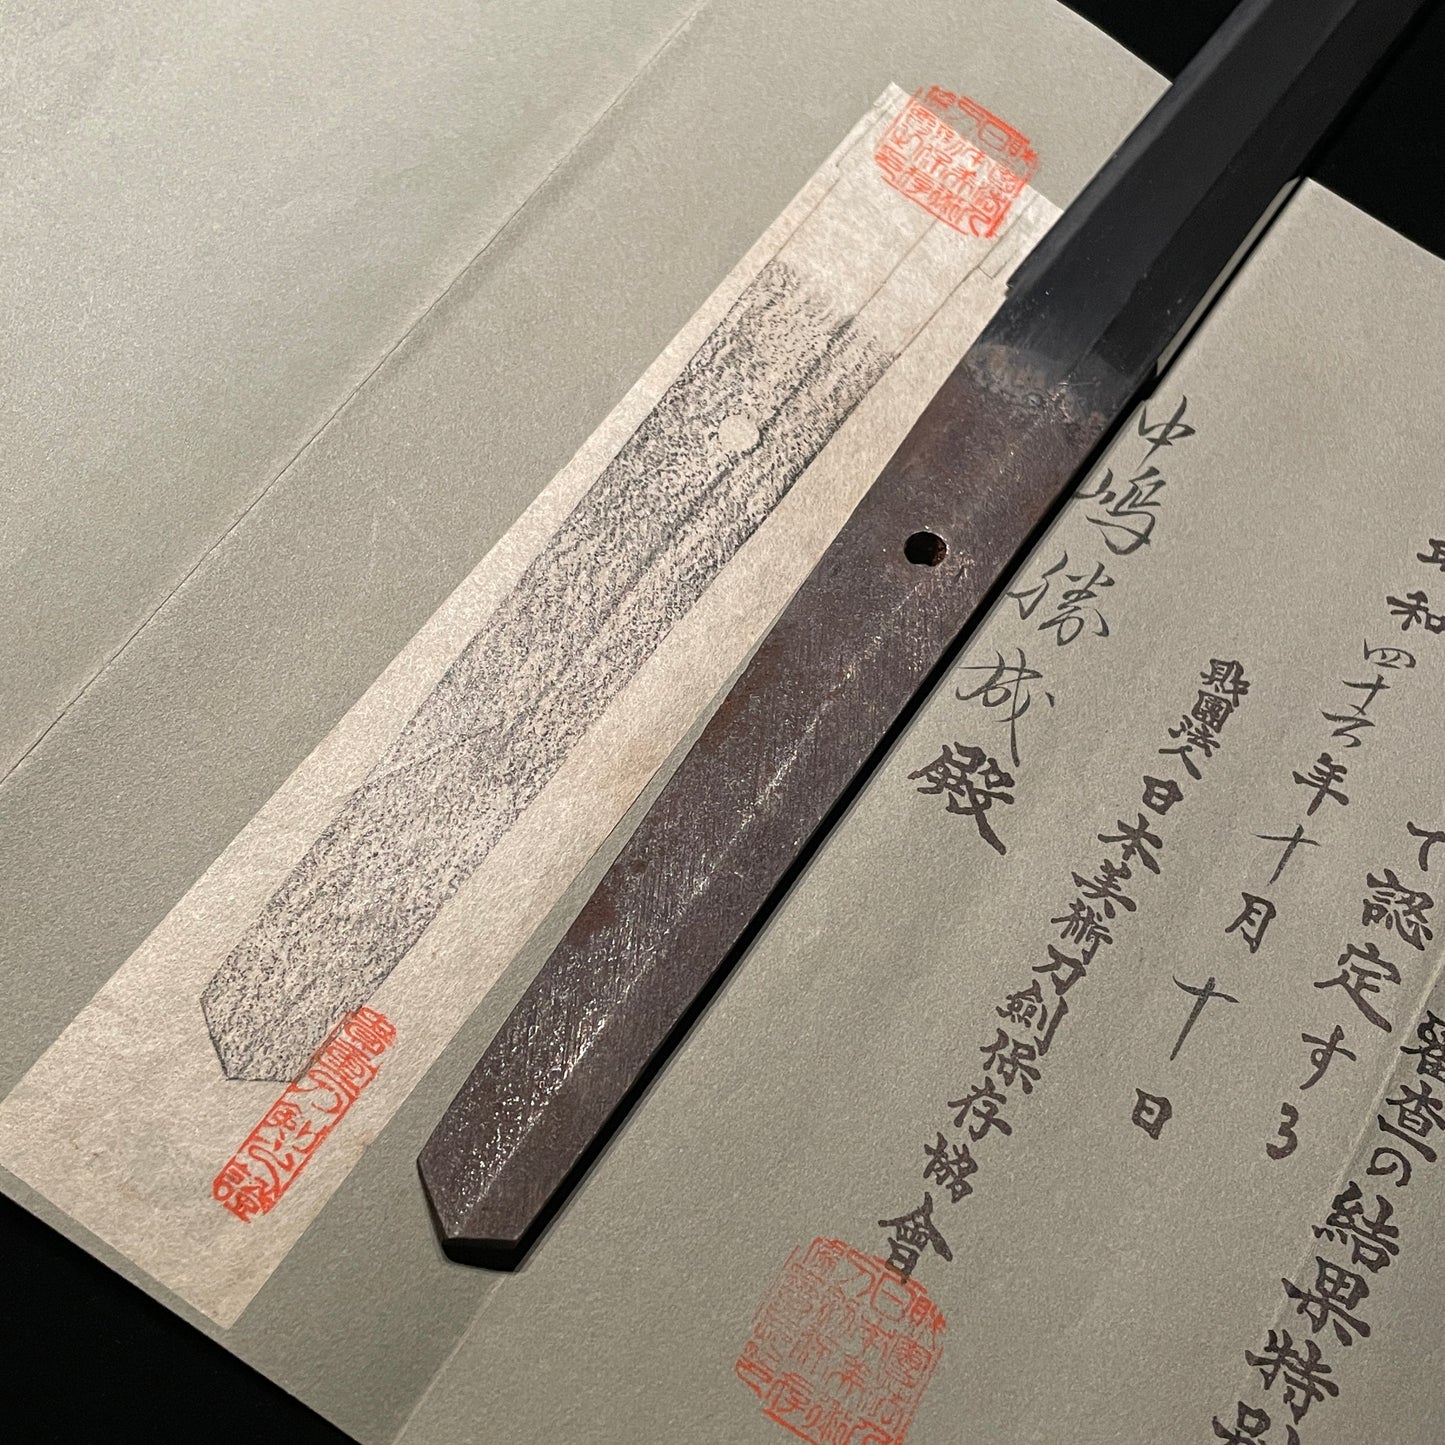 審査の結果特
て認定する
昭和四十六年十月十日
財團法人日本美術刀劍保存協會
中嶋勝城殿